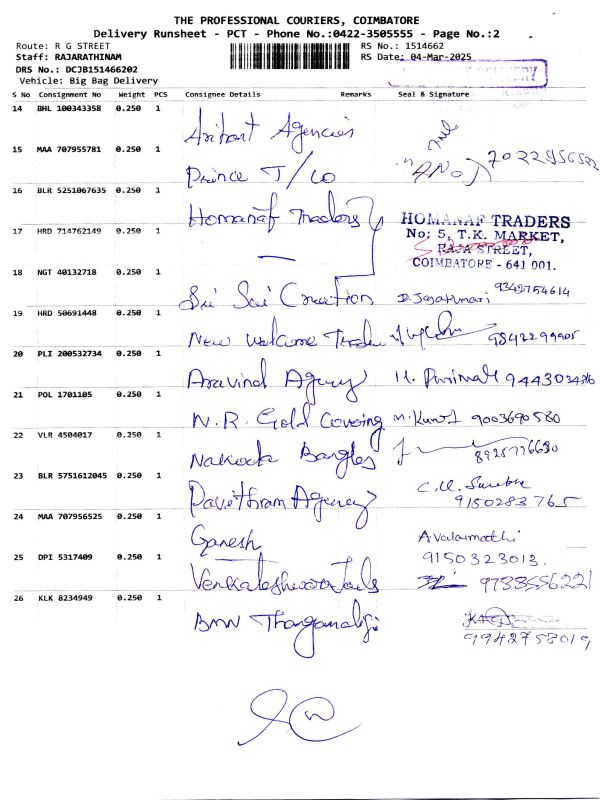 THE PROFESSIONAL COURIERS, COIMBATORE
Delivery Runsheet - PCT - Phone No.:0422-3505555 - Page No.:2
Route: R G STREET
RS No.: 1514662
Staff: RAJARATHINAM
RS Date: 04-Mar-2025
DRS No.: DCJB151466202
Vehicle: Big Bag Delivery
S No Consignment No Weight PCS Consignee Details Remarks Seal & Signature
14 BHL 100343358 0.250 1
Arihant Agencies
15 MAA 707955781 0.250 1
Prince T/Co
16 BLR 5251067635 0.250 1
Homanaf Traders
HOMANAF TRADERS
No: 5, T.K. MARKET,
RAJA STREET,
COIMBATORE - 641 001.
17 HRD 714762149 0.250 1
—
18 NGT 40132718 0.250 1
Sri Sai Creation D. Jayakumari 9342754614
19 HRD 50691448 0.250 1
New Welcome Trader 9842299905
20 PLI 200532734 0.250 1
Aravind Agency
21 POL 1701105 0.250 1
N.R. Gold Covering 9003690580
22 VLR 4504017 0.250 1
Nakoda Bangles 8925776630
23 BLR 5751612045 0.250 1
Pavithram Agency
9150283765
24 MAA 707956525 0.250 1
Ganesh A.Valarmathi
9150323013.
25 DPI 5317409 0.250 1
Venkateshwara 9788556221
26 KLK 8234949 0.250 1
BMW Thangamaligi
9942758019